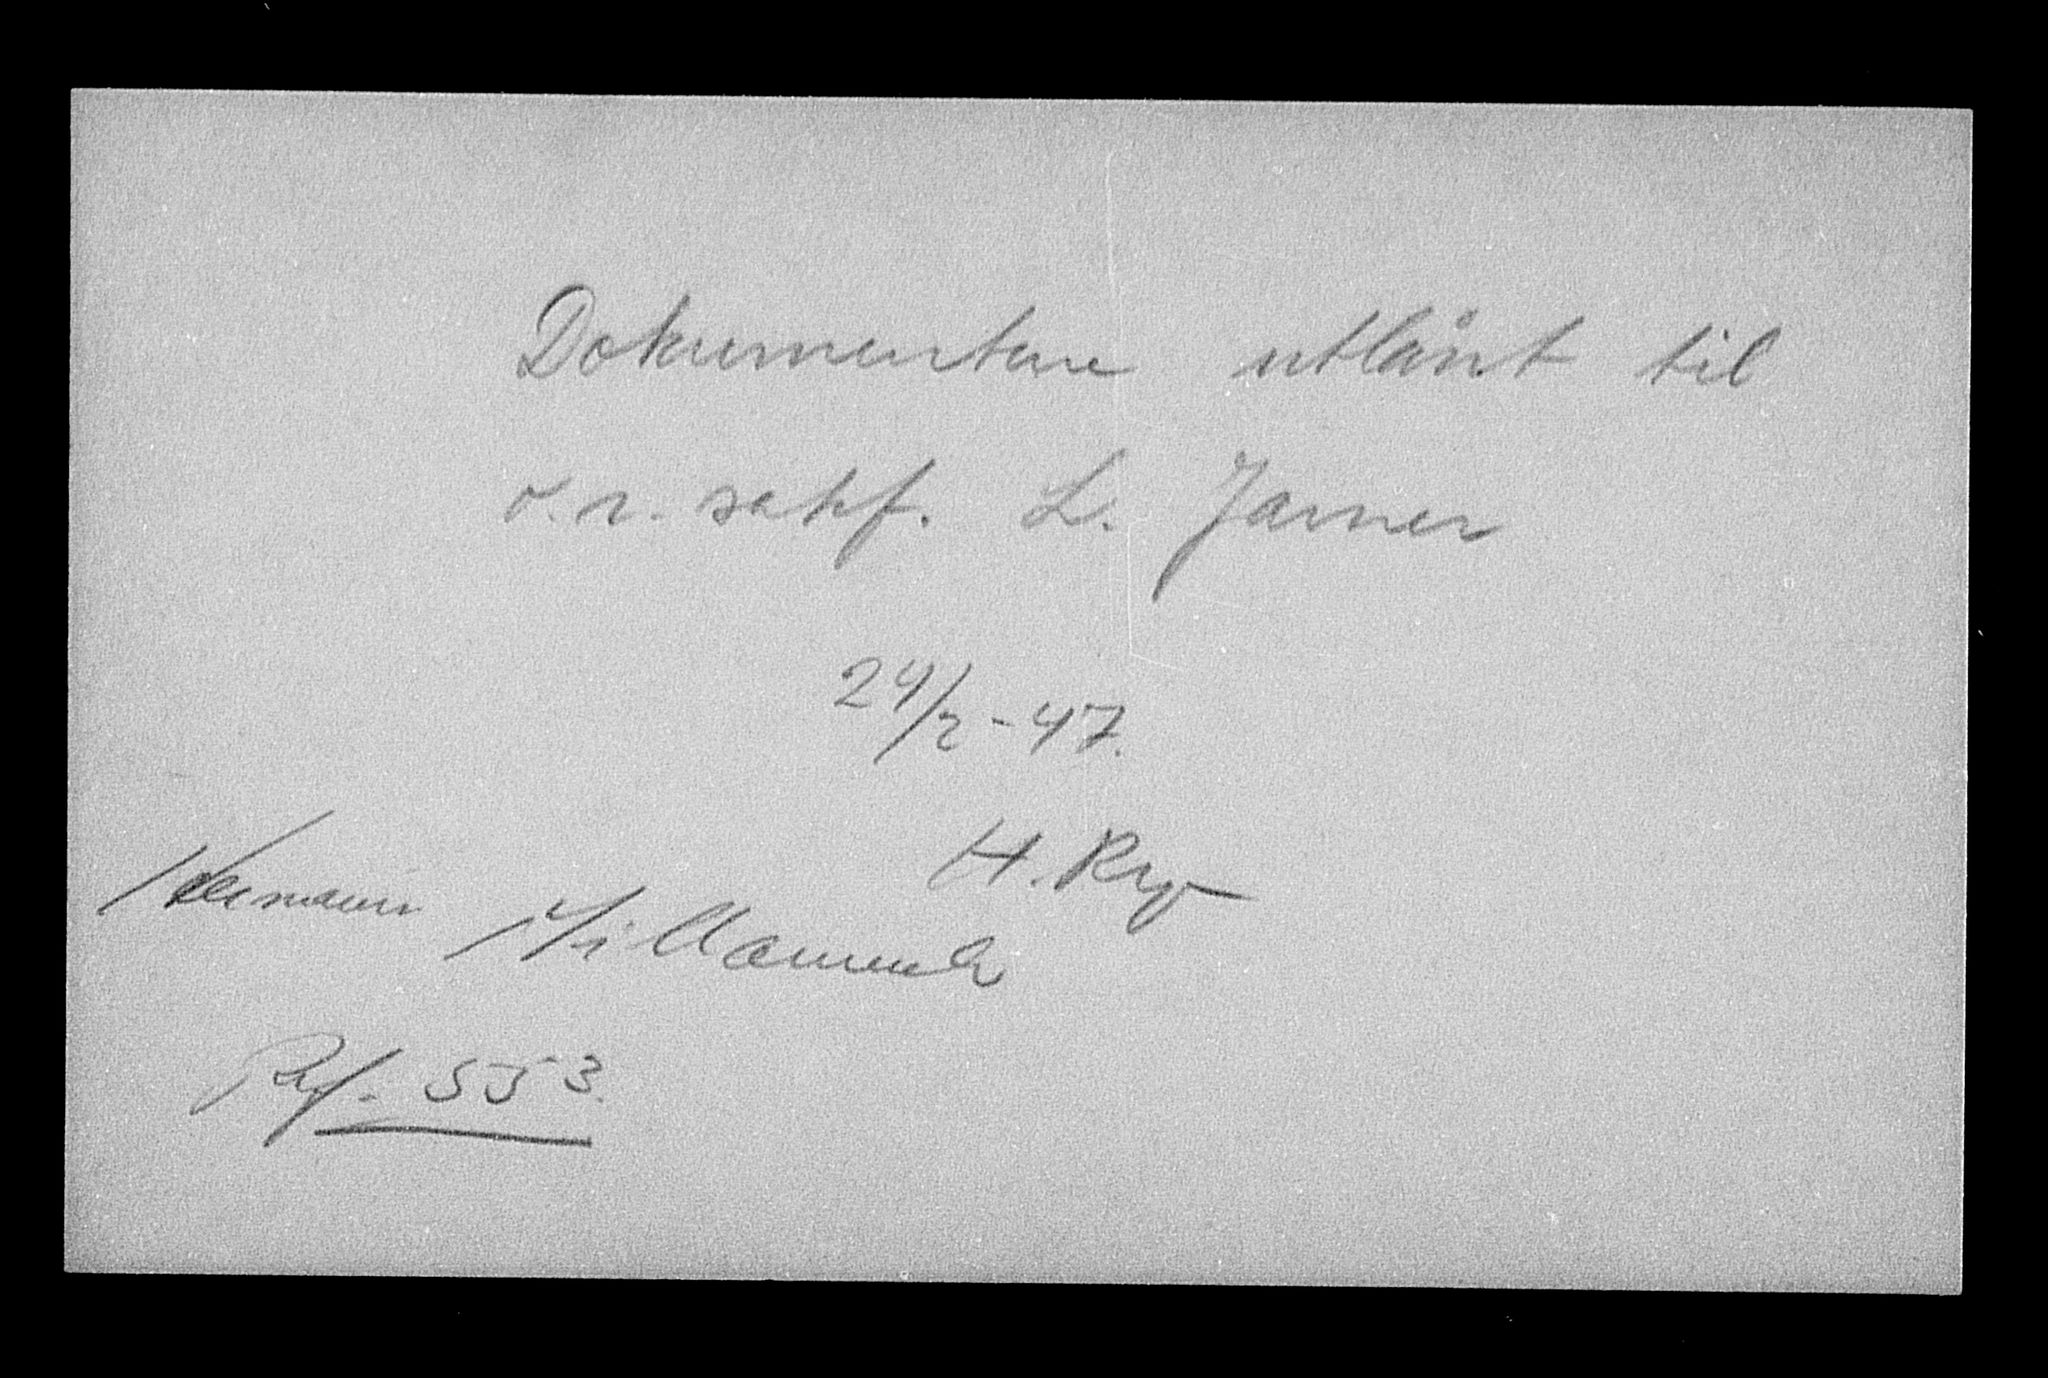 Dokumentene utlånt til
o.r. sakf. L. Jarner
24/2-47.
H. Ry
Hermann
Ref. 553.